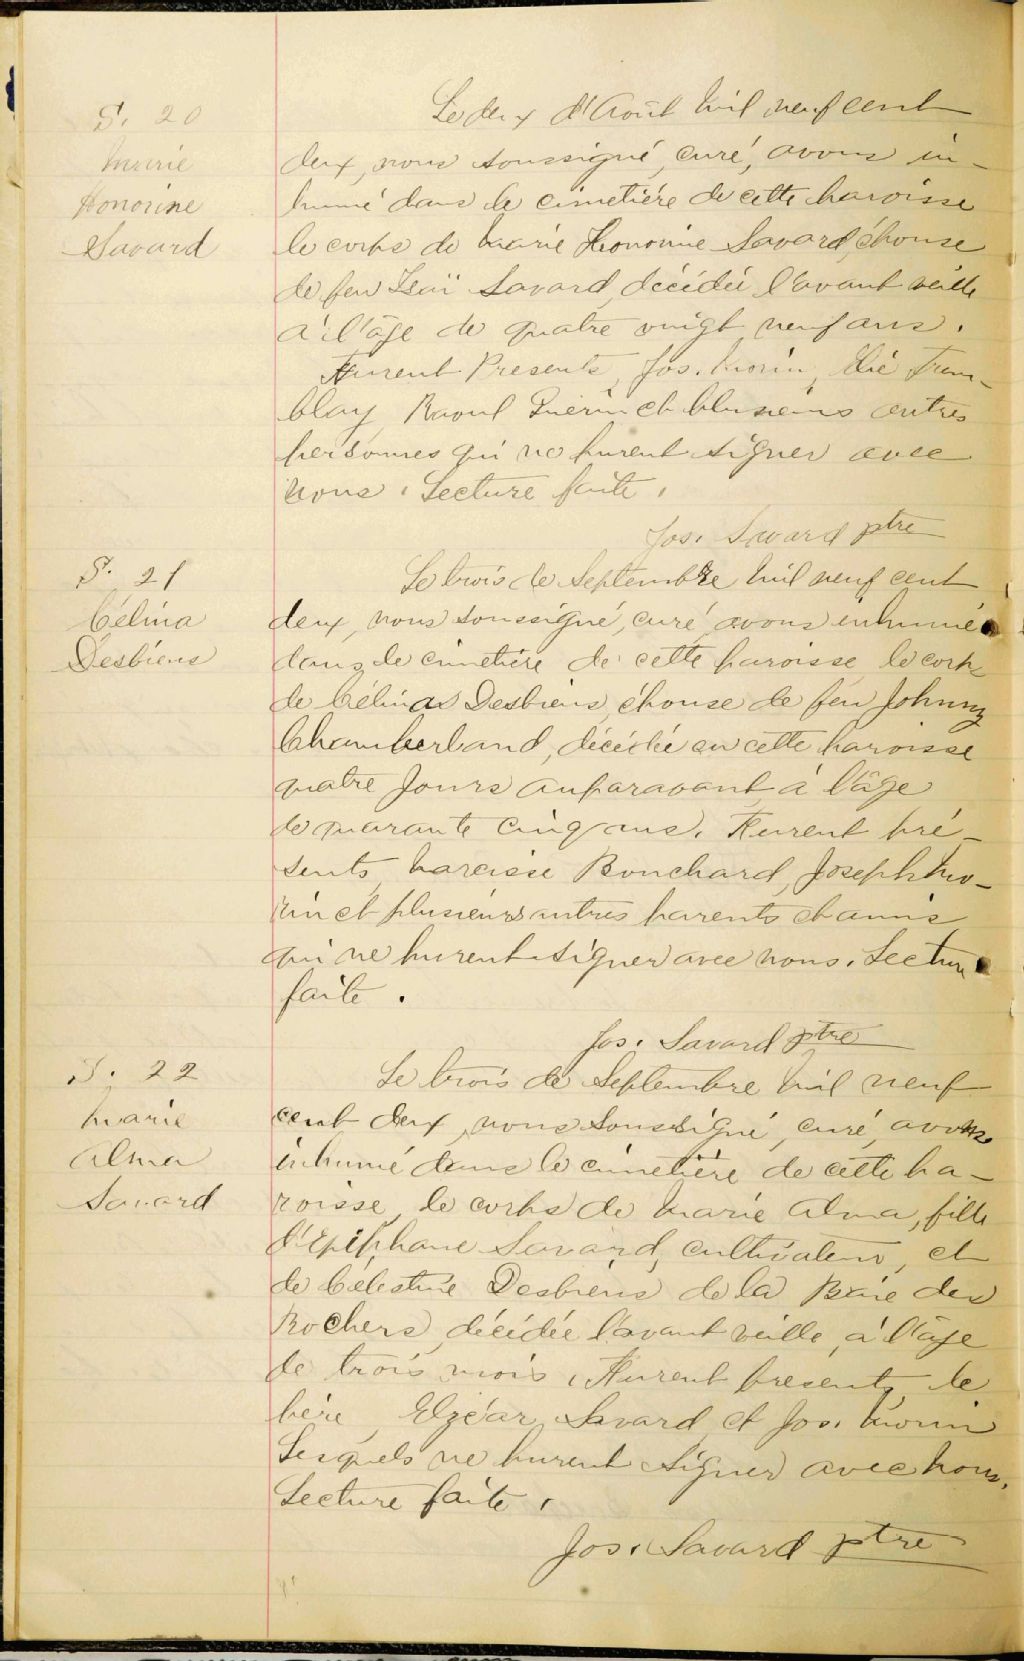 S. 20
Marie
Honorine
Savard
Le deux d'Août mil neuf cent
deux, nous soussigné, curé, avons in-
humé dans le cimetière de cette paroisse
le corps de Marie Honorine Savard, épouse
de feu Isaï Savard, décédée l'avant veille
à l'âge de quatre vingt neuf ans.
Furent Presents, Jos. Morin, Elie Trem-
blay, Raoul Guérin et plusieurs autres
personnes qui ne purent signer avec
nous. Lecture faite.
Jos. Savard ptre
S. 21
Célina
Desbiens
Le trois de Septembre mil neuf cent
deux, nous soussigné, curé, avons inhumé
dans le cimetière de cette paroisse le corps
de Célina Desbiens, épouse de feu Johnny
Chamberland, décédée en cette paroisse
quatre jours auparavant à l'âge
de quarante cinq ans. Furent pré-
sents, Narcisse Bouchard, Joseph Mo-
rin et plusieurs autres parents et amis
qui ne purent signer avec nous. Lecture
faite.
Jos. Savard ptre
S. 22
Marie
Alma
Savard
Le trois de Septembre mil neuf
cent deux, nous soussigné, curé, avons
inhumé dans le cimetière de cette pa-
roisse, le corps de Marie Alma, fille
d'Epiphane Savard, cultivateur, et
de Célestine Desbiens de la Baie des
Rochers, décédée l'avant veille, à l'âge
de trois mois. Furent presents, le
père, Elzéar Savard et Jos. Morin
Lesquels ne purent signer avec nous.
Lecture faite.
Jos. Savard ptre